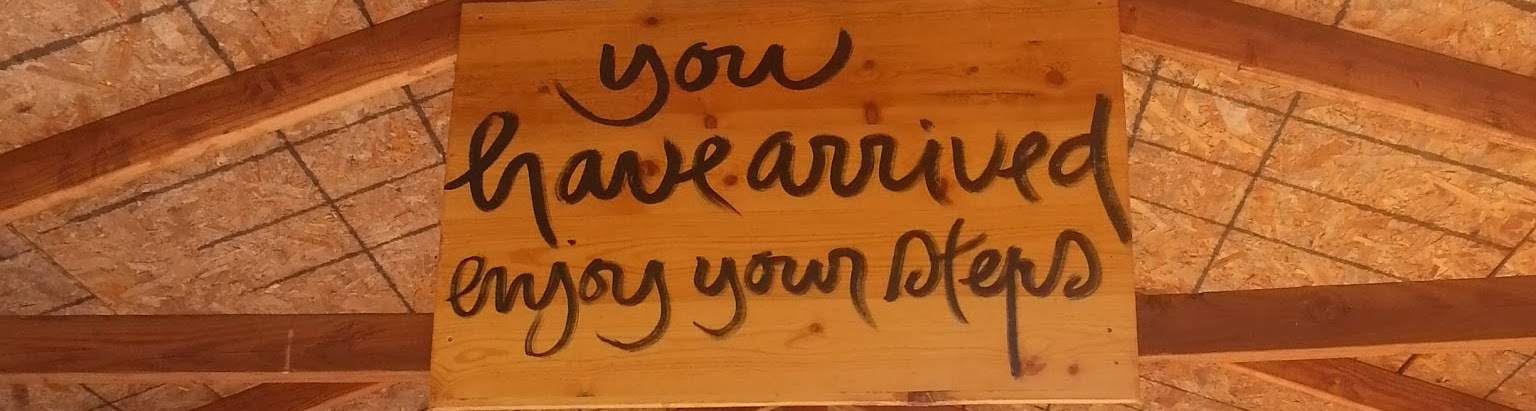 you
have arrived
enjoy your steps